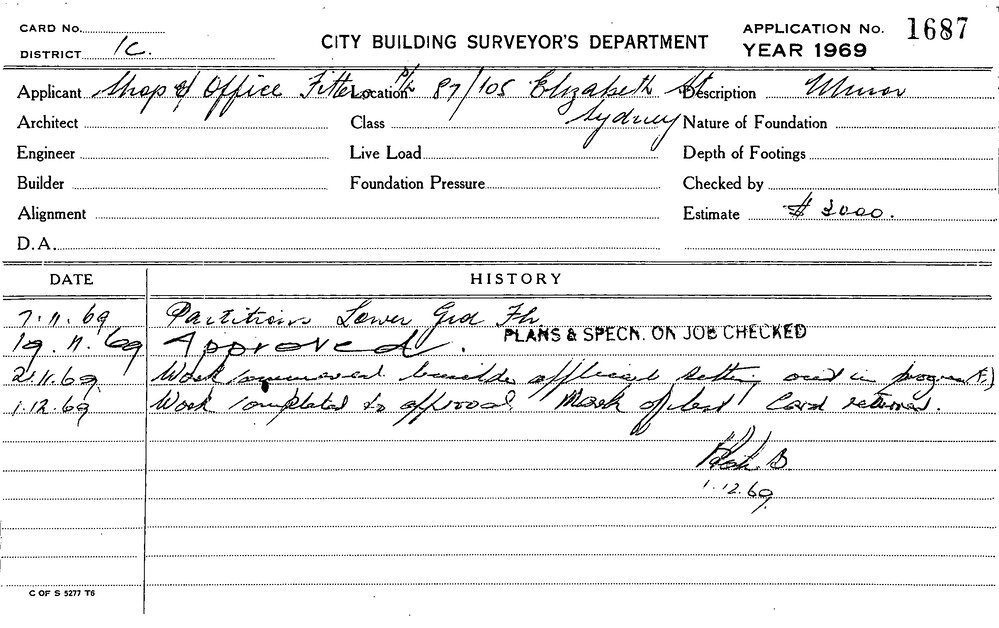 CARD No.
DISTRICT 1C.
CITY BUILDING SURVEYOR'S DEPARTMENT
APPLICATION No. 1687
YEAR 1969
Applicant Shop & Office Fitters P/L Location 87/105 Elizabeth St Description Minor
Sydney
Architect Class Nature of Foundation
Engineer Live Load Depth of Footings
Builder Foundation Pressure Checked by
Alignment Estimate $ 3000.
D.A.
DATE HISTORY
7.11.69 Partitions Lower Grd Flr
PLANS & SPECN. ON JOB CHECKED
19.11.69 Approved.
2.11.69 Work commenced setting out in progress
1.12.69 Work completed to approval Card returned.
1.12.69
C OF S 5277 T6